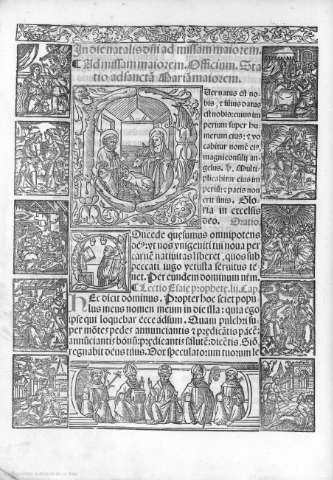 In die natalis dñi ad missam maiorem.
¶ Ad missam maiorem. Officium. Sta
tio ad sanctã Mariã maiorem.
Puer natus est no
bis, et filius datus
est nobis: cuius im
perium super hu
merum eius: et vo
cabitur nomẽ eiꝰ
magni consilij an
gelus. ps. Multi
plicabitur eius im
perium: et pacis non
erit finis. Glo
ria in excelsis
deo. Oratio
Concede quesumus omnipotens
deꝰ: vt nos vnigeniti tui noua per
carnẽ natiuitas liberet, quos sub
peccati iugo vetusta seruitus te
net. Per eundem dominum nr̃m.
¶ Lectio Esaie prophete. lij. Cap.
Hec dicit dominus. Propter hoc sciet popu
lus meus nomen meum in die illa: quia ego
ipse qui loquebar ecce adsum. Quam pulchri su
per mõtes pedes annunciantis et predicãtis pacẽ:
annũciantis bonũ: predicãtis salutẽ: dicẽtis. Siõ
regnabit deus tuus. Vox speculatorum tuorum le